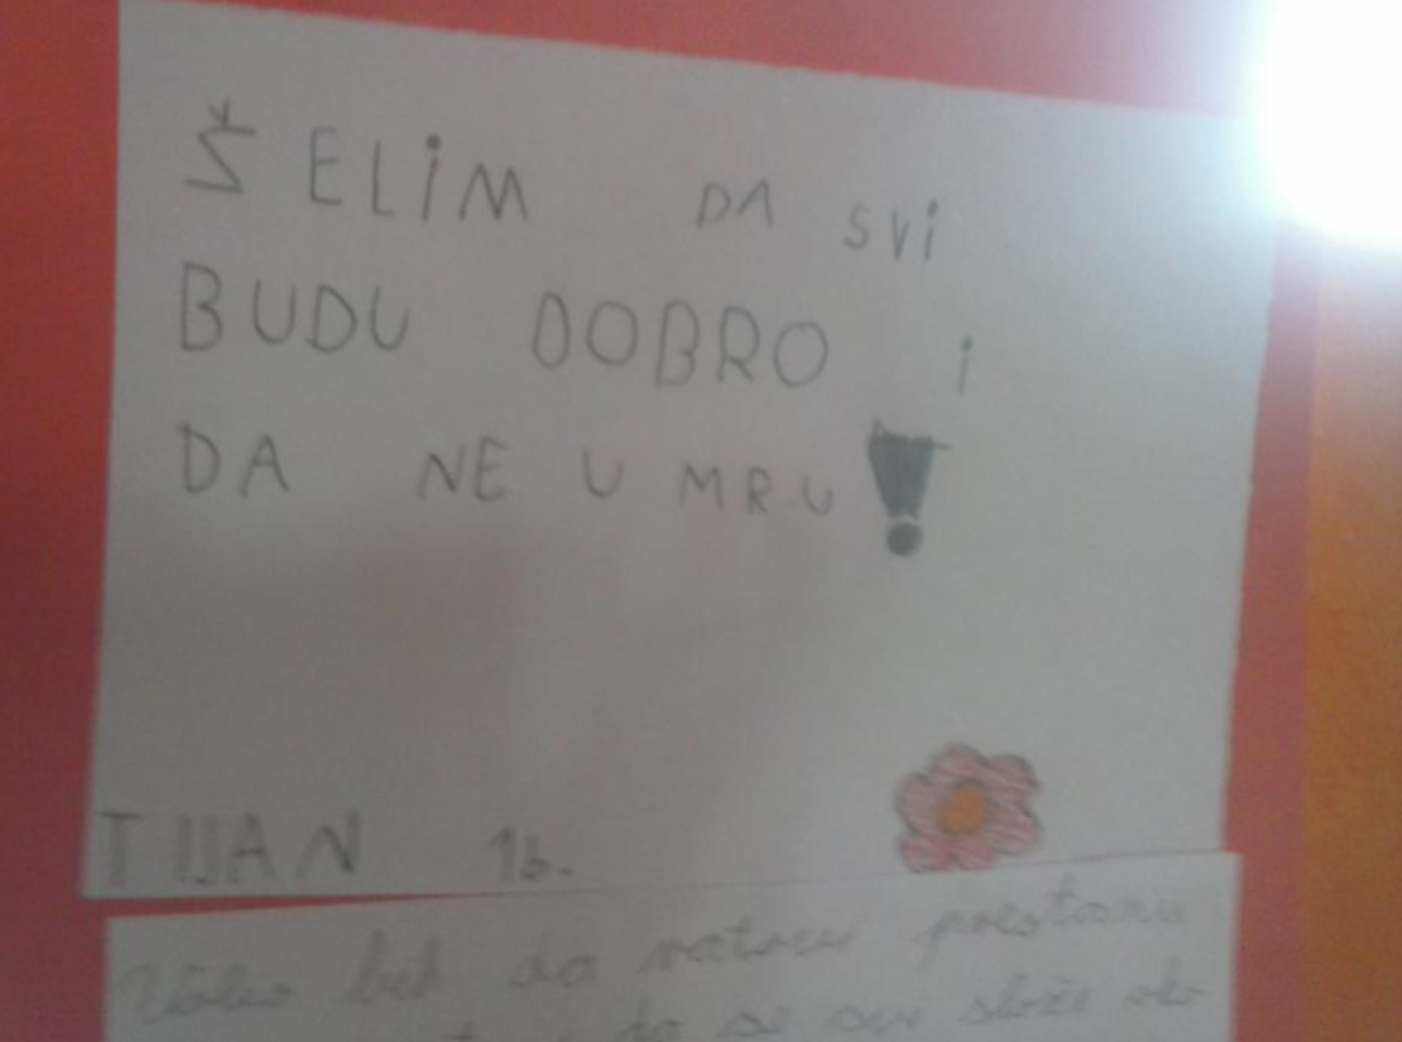 ŠELIM DA SVI
BUDU DOBRO I
DA NE UMRU!
TIJAN 1b.
bih da ratovi prestanu
da se svi slože oko